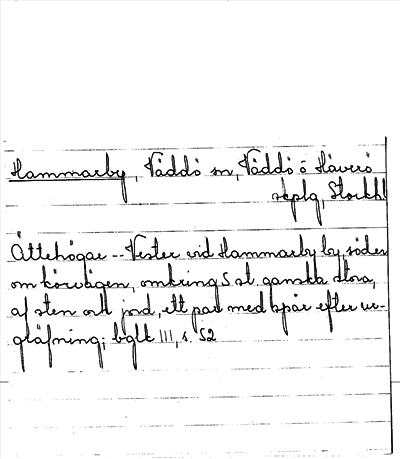 Hammarby, Väddö sn, Väddö ö Häverö
skplg, Stockhl
Ättehögar -- Vester vid Hammarby by, söder
om körvägen, omkring 5 st. ganska stora,
af sten och jord, ett par med spår efter ur-
gräfning; bglt III, s. 52